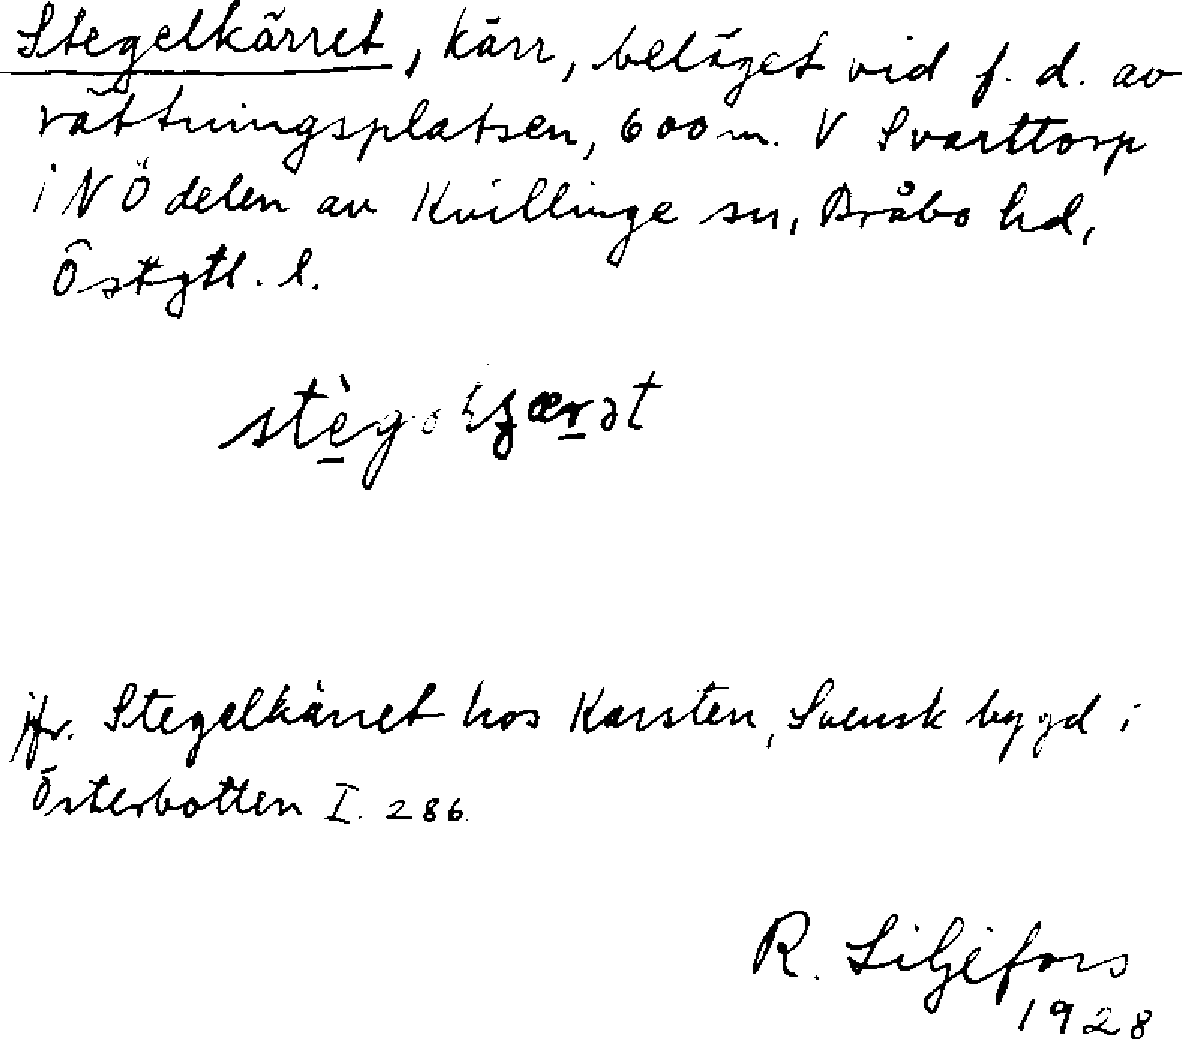 Stegelkärret, kärr, beläget vid f. d. av
rättningsplatsen, 600 m. V Svarttorp
i NÖ delen av Kvillinge sn, Bråbo hd,
Östgtl. l.
Jfr. Stegelkärret hos Karsten, Svensk bygd i
Österbotten I. 286.
R. Liljefors
1928